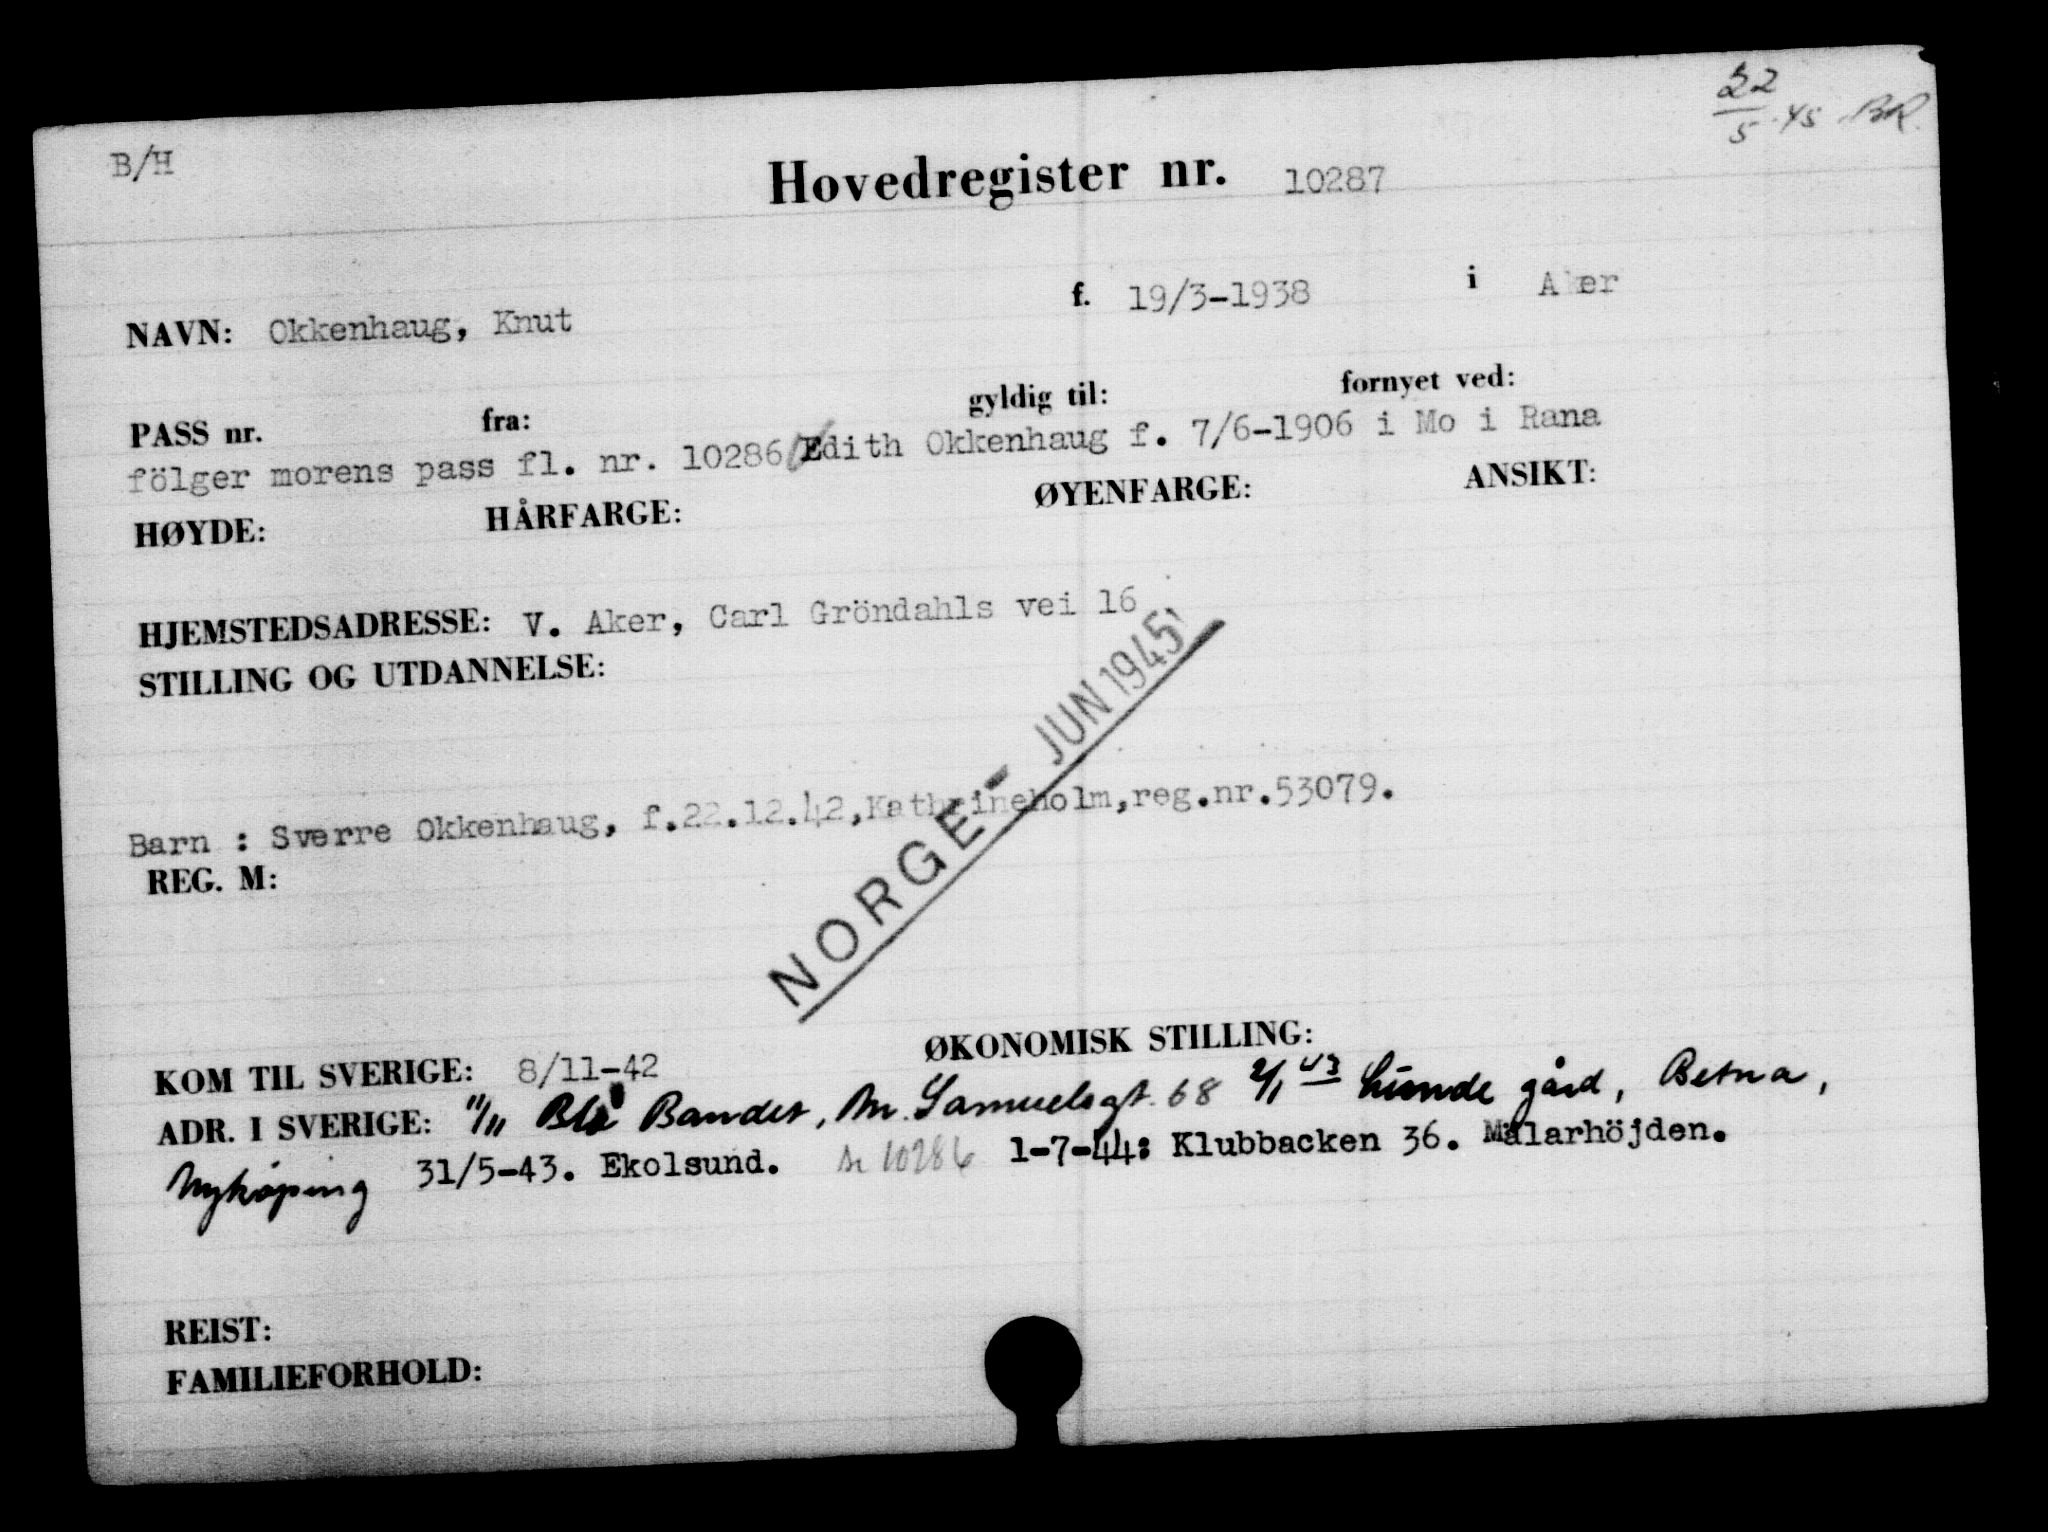 22/5-45 BR.
B/H
Hovedregister nr. 10287
NAVN: Okkenhaug, Knut f. 19/3-1938 i Aker
PASS nr. fra: gyldig til: fornyet ved:
fölger morens pass fl. nr. 10286 Edith Okkenhaug f. 7/6-1906 i Mo i Rana
HØYDE: HÅRFARGE: ØYENFARGE: ANSIKT:
HJEMSTEDSADRESSE: V. Aker, Carl Gröndahls vei 16
STILLING OG UTDANNELSE:
NORGE - JUN 1945
Barn : Sverre Okkenhaug, f.22.12.42,Kathrineholm,reg.nr.53079.
REG. M:
KOM TIL SVERIGE: 8/11-42 ØKONOMISK STILLING:
ADR. I SVERIGE: 11/11 Blå Bandet, M. Samuelsgt. 68 2/1 43 Lunde gård, Betna,
Nykøping 31/5-43. Ekolsund. Se 10286 1-7-44: Klubbacken 36. Mälarhöjden.
REIST:
FAMILIEFORHOLD: